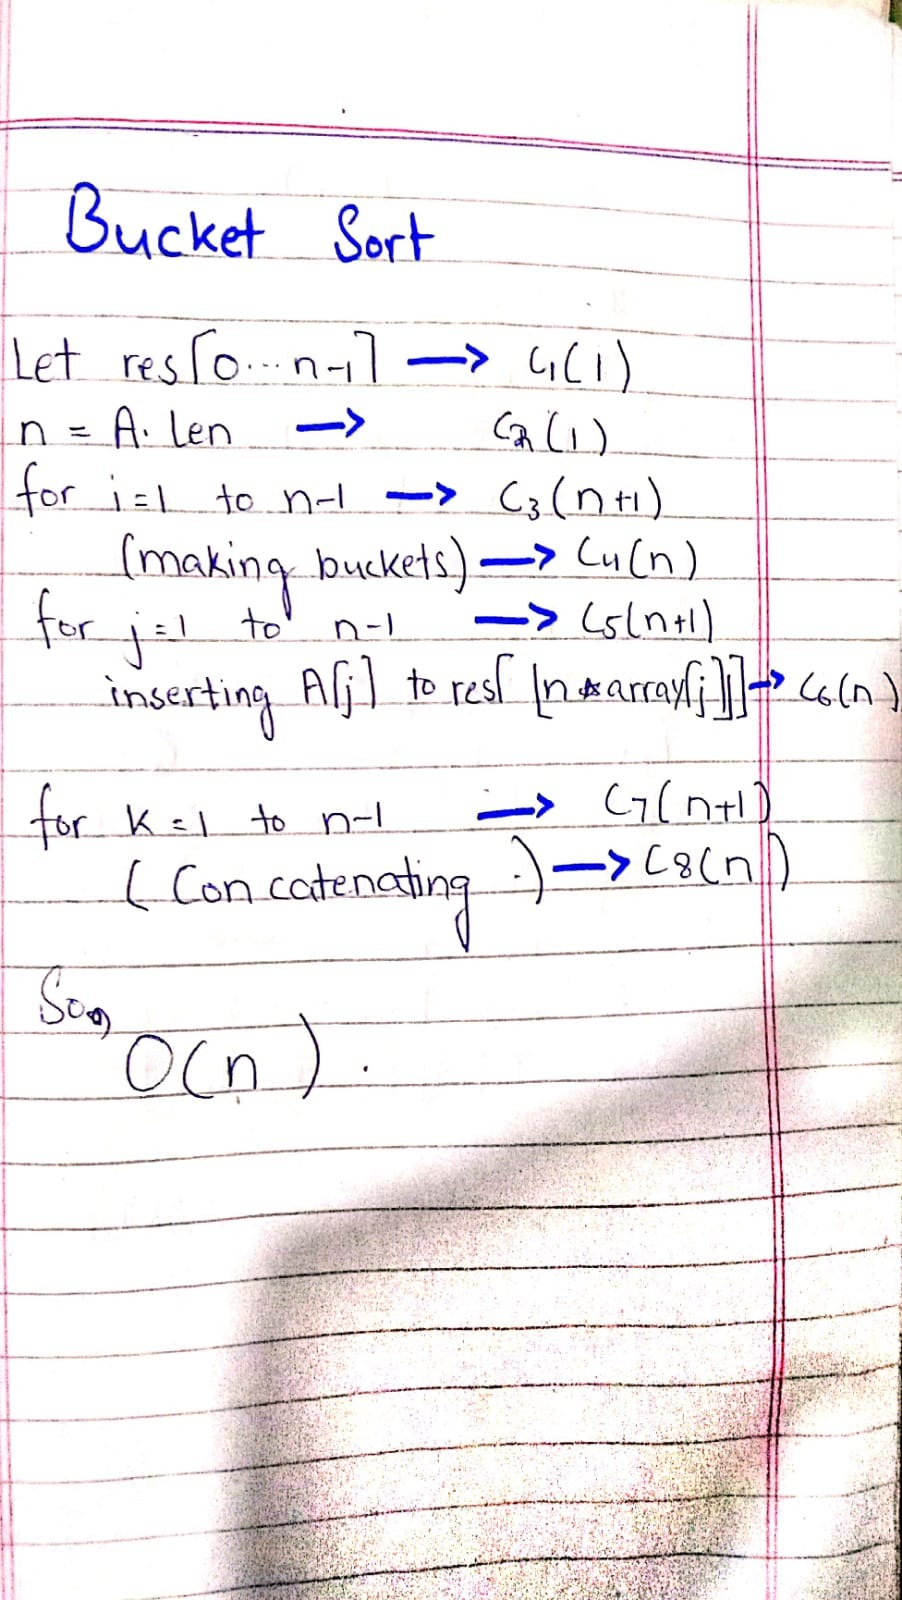 Bucket Sort
Let res[0...n-1] → C1(1)
n = A. len → C2(1)
for i=1 to n-1 → C3(n+1)
(making buckets) → C4(n)
for j=1 to n-1 → C5(n+1)
inserting A[j] to res[ [n*array[j]]] → C6(n)
for K=1 to n-1 → C7(n+1)
( Concatenating .) → C8(n)
So,
O(n) .